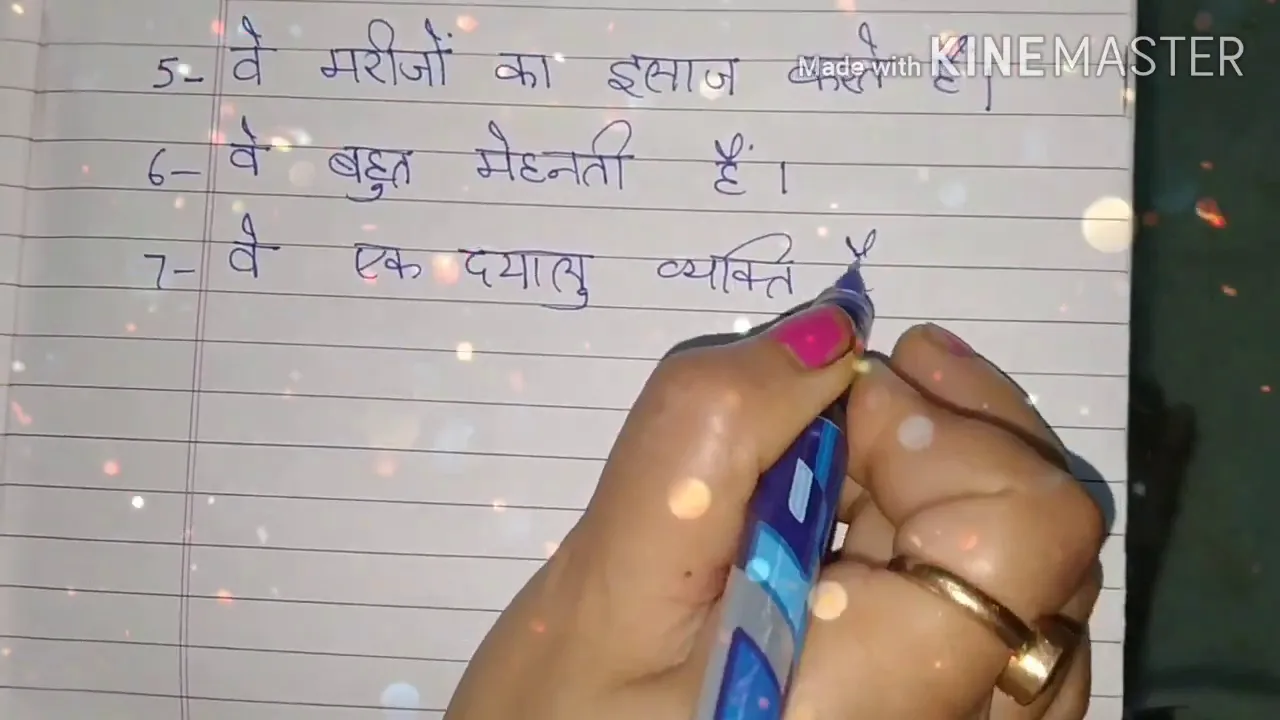 5- वे मरीजों का इलाज करते हैं।
Made with KINEMASTER
6- वे बहुत मेहनती हैं।
7- वे एक दयालु व्यक्ति